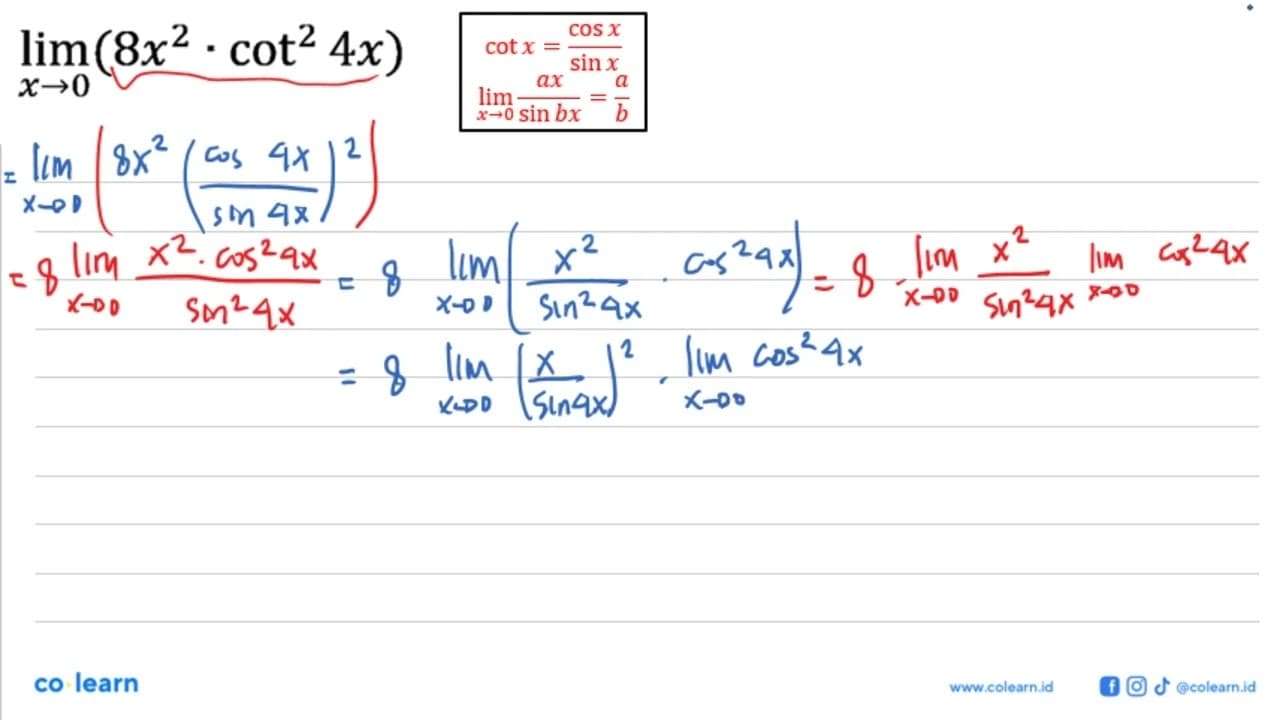 lim(8x² · cot² 4x)
x→0
cot x = cos x / sin x
lim x→0 ax / sin bx = a / b
= lim x→0 (8x² (cos 4x / sin 4x)²)
= 8 lim x→0 x² · cos² 4x / sin² 4x = 8 lim x→0 (x² / sin² 4x · cos² 4x) = 8 · lim x→0 x² / sin² 4x lim x→0 cos² 4x
= 8 lim x→0 (x / sin 4x)² · lim x→0 cos² 4x
co learn
www.colearn.id
@colearn.id